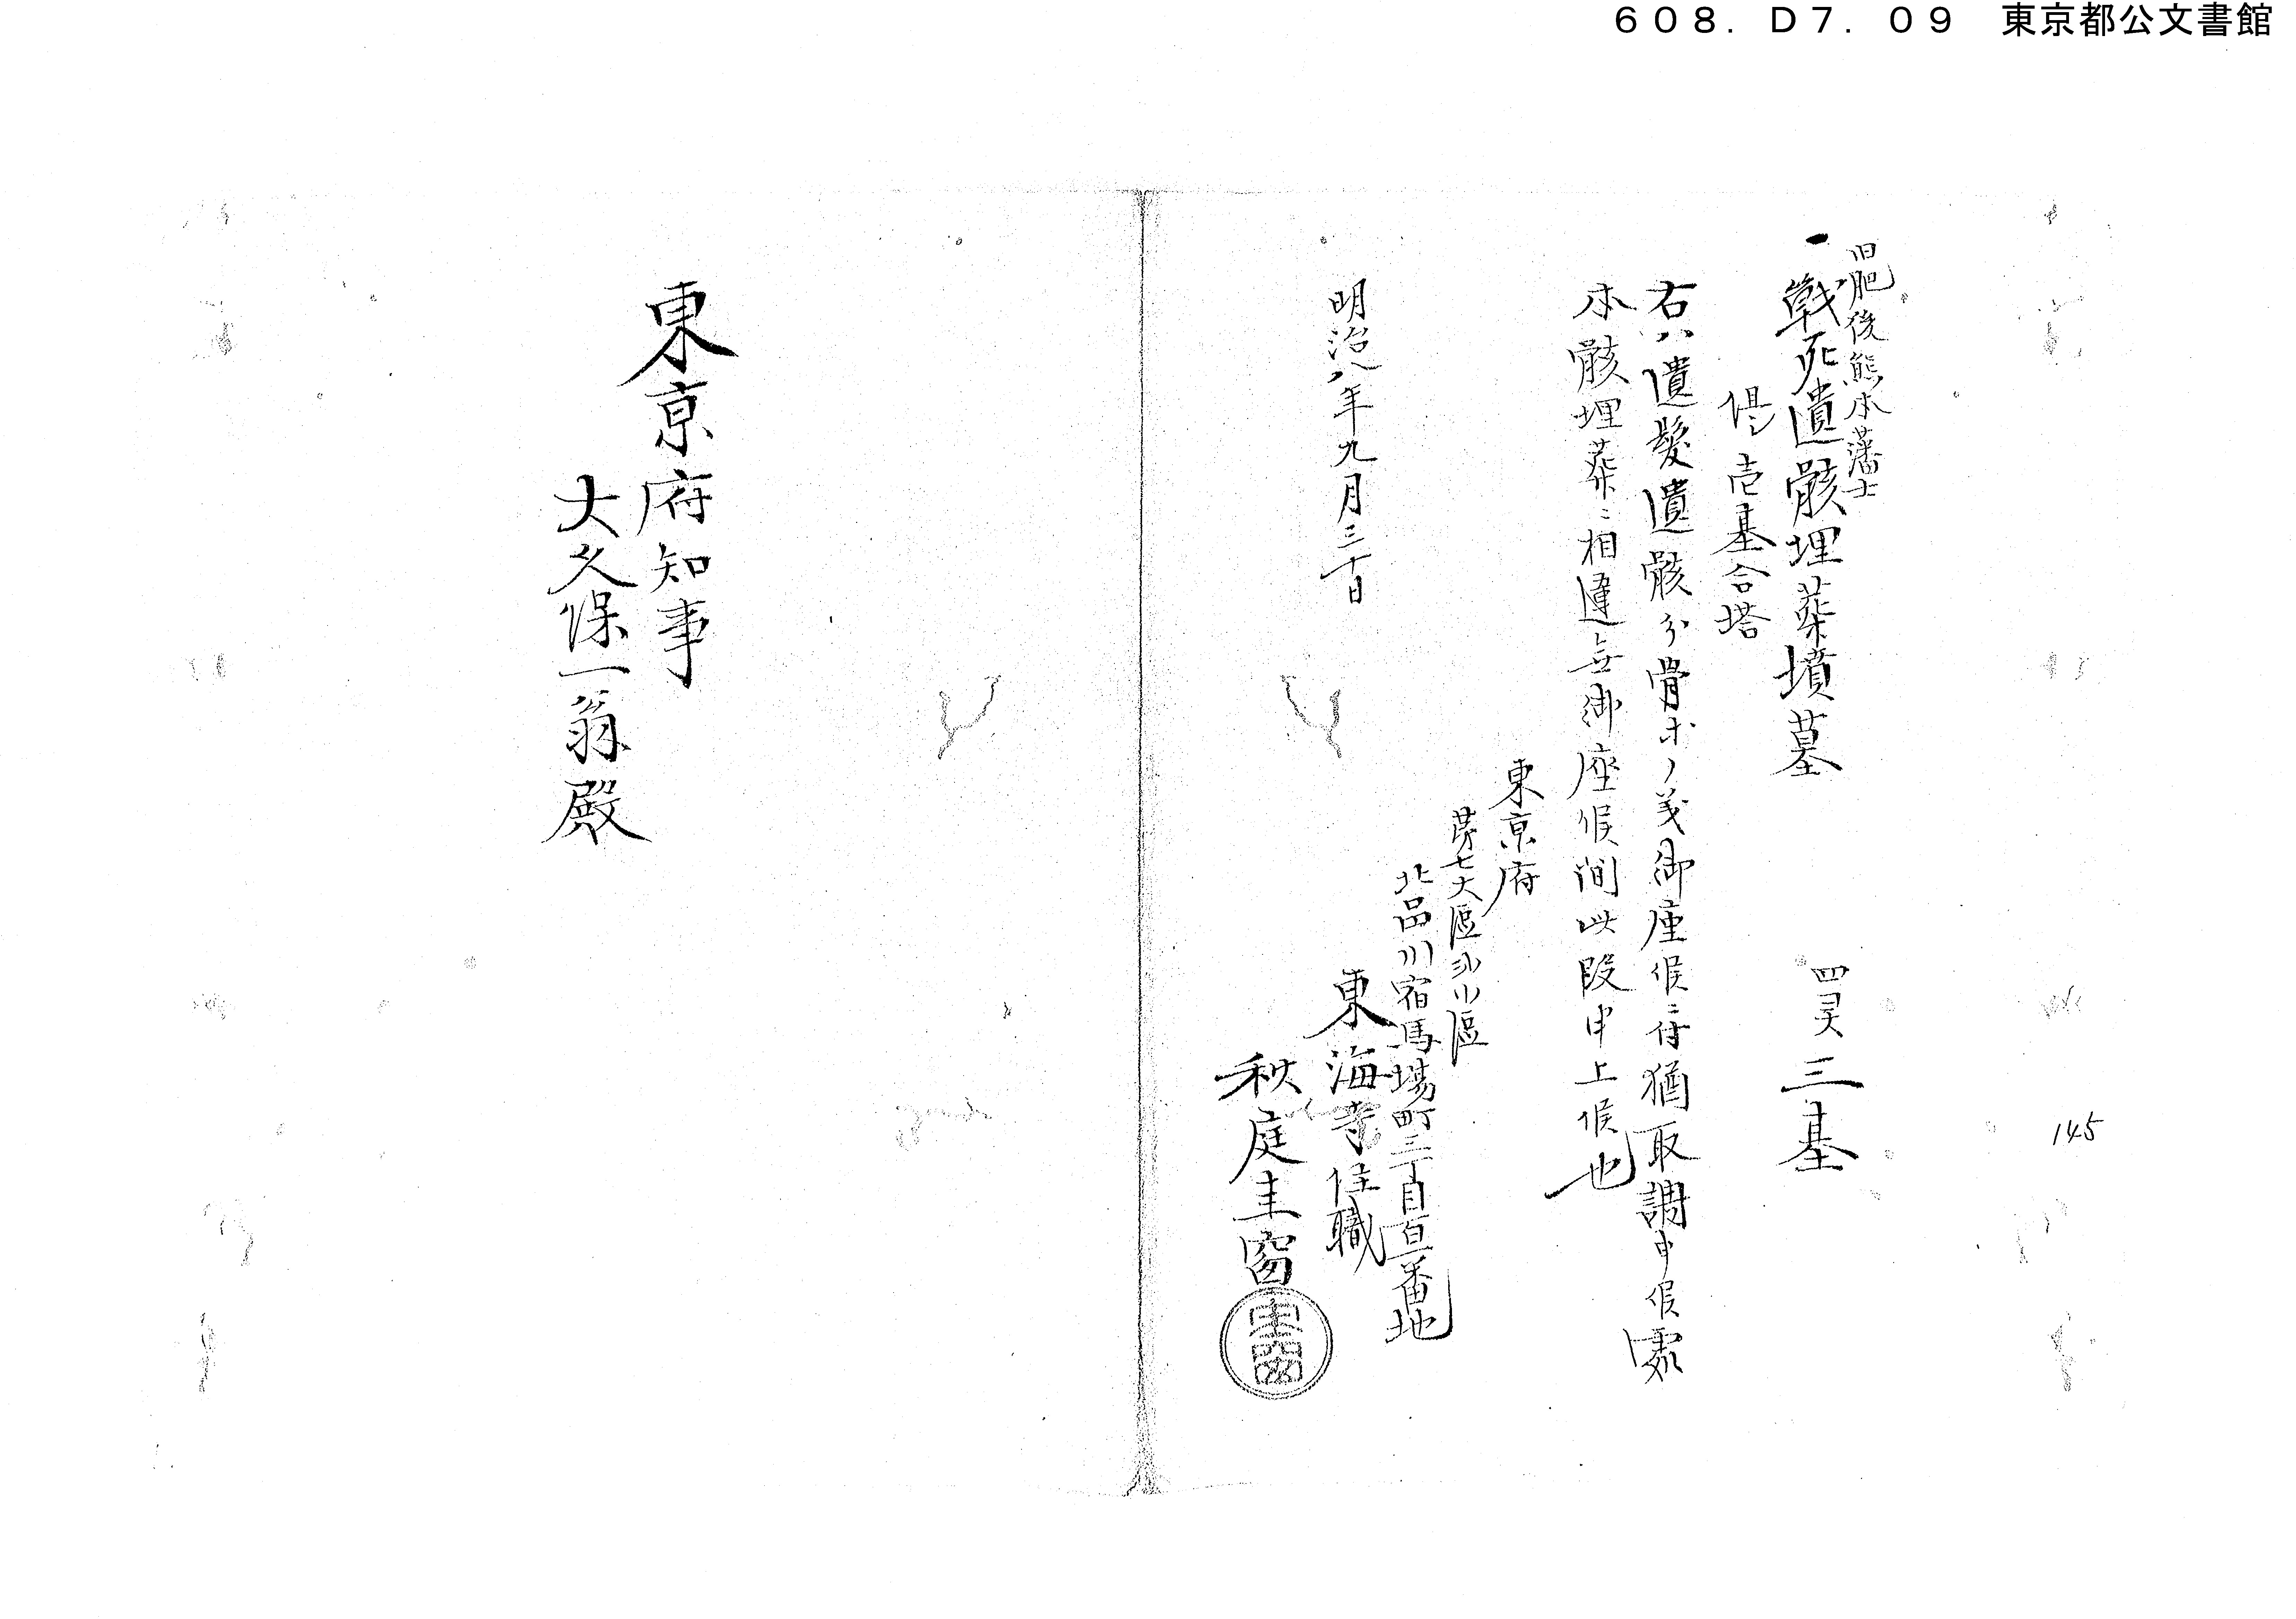 608. D7. 09 東京都公文書館
旧肥後熊本藩士
一戦死遺骸埋葬墳墓 四霊 三基
但シ壱基合塔
右ハ遺髪遺骸分骨等ノ義御座候ニ付猶取調申候處
本骸埋葬ニ相違無御座候間此段申上候也
東京府
第七大區弐小區
北品川宿馬場町三丁目百一番地
東海寺住職
秋庭圭窗
圭窗
明治八年九月三十日
東京府知事
大久保一翁殿
145